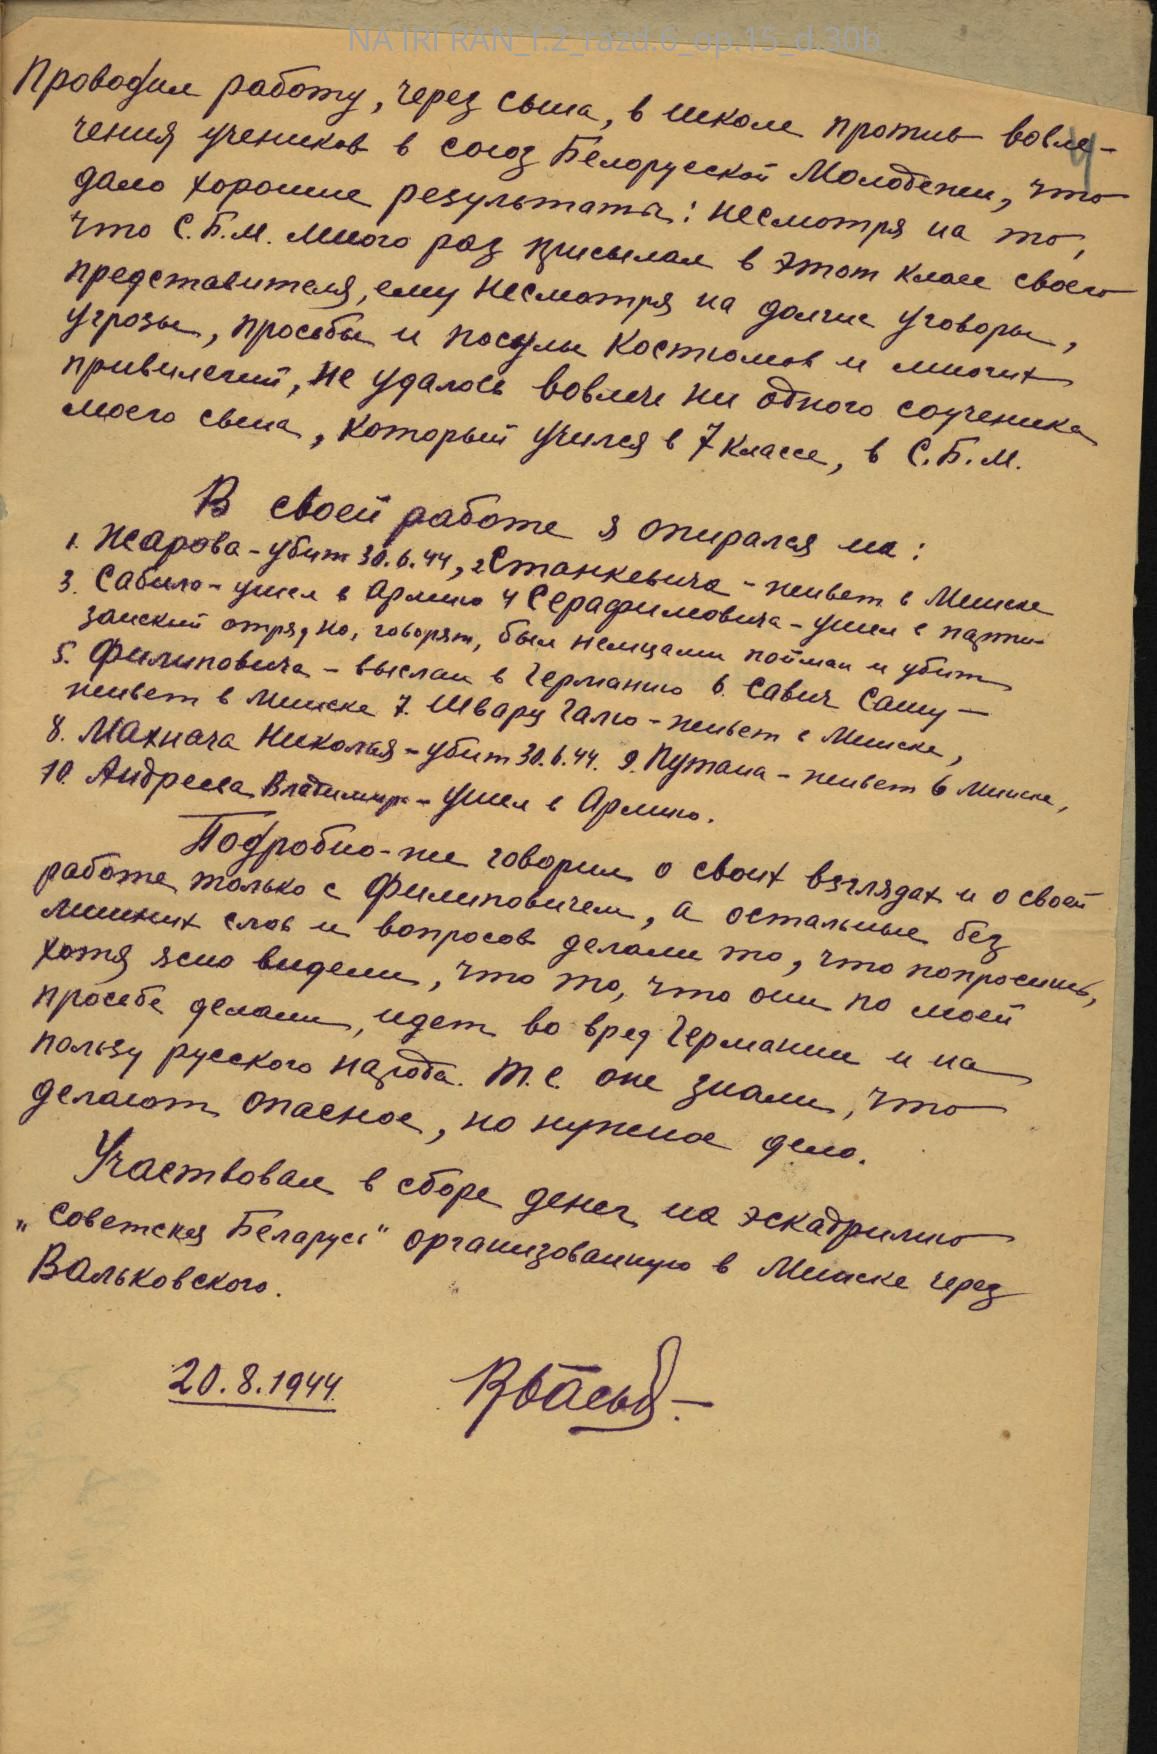 NA IRI RAN_f.2_razd.6_op.15_d.30b
4
Проводил работу, через сына, в школе против вовле-
чения учеников в союз Белорусской Молодежи, что
дало хорошие результаты: несмотря на то,
что С.Б.М. много раз присылал в этот класс своего
представителя, ему несмотря на долгие уговоры,
угрозы, просьбы и посулы костюмов и многих
привилегий, не удалось вовлечь ни одного соученика
моего сына, который учился в 7 классе, в С.Б.М.
В своей работе я опирался на:
1. Жарова - убит 30.6.44, 2 Станкевича - живет в Минске
3. Сабило - ушел в Армию 4 Серафимовича - ушел в парти-
занский отряд, но, говорят, был немцами пойман и убит
5. Филиповича - выслан в Германию 6. Савич Сашу -
живет в Минске 7. Шварц Галю - живет в Минске,
8. Махнача Николая - убит 30.6.44. 9. Путана - живет в Минске,
10. Андреева Владимира - ушел в Армию.
Подробно-же говорил о своих взглядах и о своей
работе только с Филиповичем, а остальные без
лишних слов и вопросов делали то, что попросишь,
хотя ясно видели, что то, что они по моей
просьбе делали, идет во вред Германии и на
пользу русского народа. Т.е. они знали, что
делают опасное, но нужное дело.
Участвовал в сборе денег на эскадрилию
„Советская Беларусь" организованную в Минске через
Вальковского.
20.8.1944